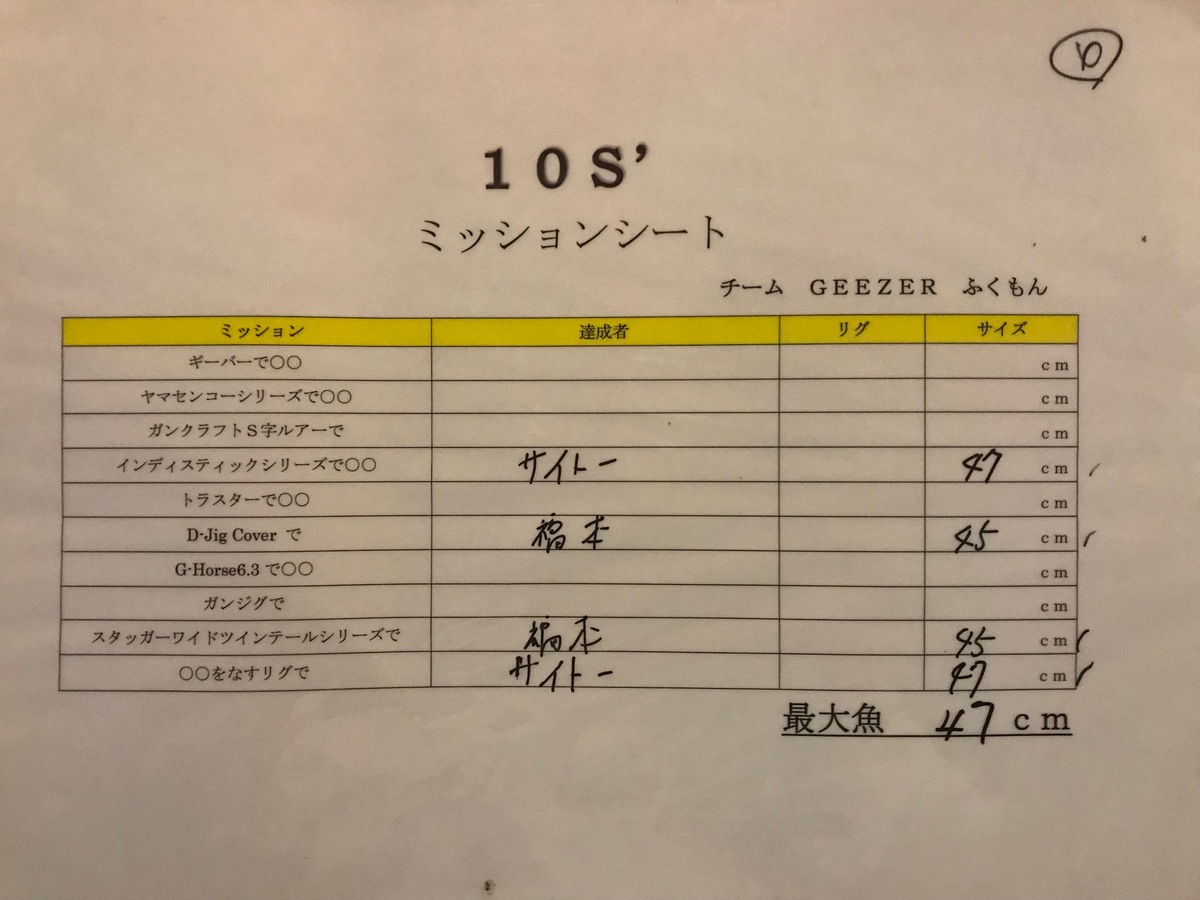 10S’
ミッションシート
チーム　GEEZER　ふくもん
ミッション 達成者 リグ サイズ
ギーバーで〇〇 cm
ヤマセンコーシリーズで〇〇 cm
ガンクラフトS字ルアーで cm
インディスティックシリーズで〇〇 サイトー 47 cm
トラスターで〇〇 cm
D-Jig Cover で 福本 45 cm
G-Horse6.3 で〇〇 cm
ガンジグで cm
スタッガーワイドツインテールシリーズで 福本 45 cm
〇〇をなすリグで サイトー 47 cm
最大魚 47 cm